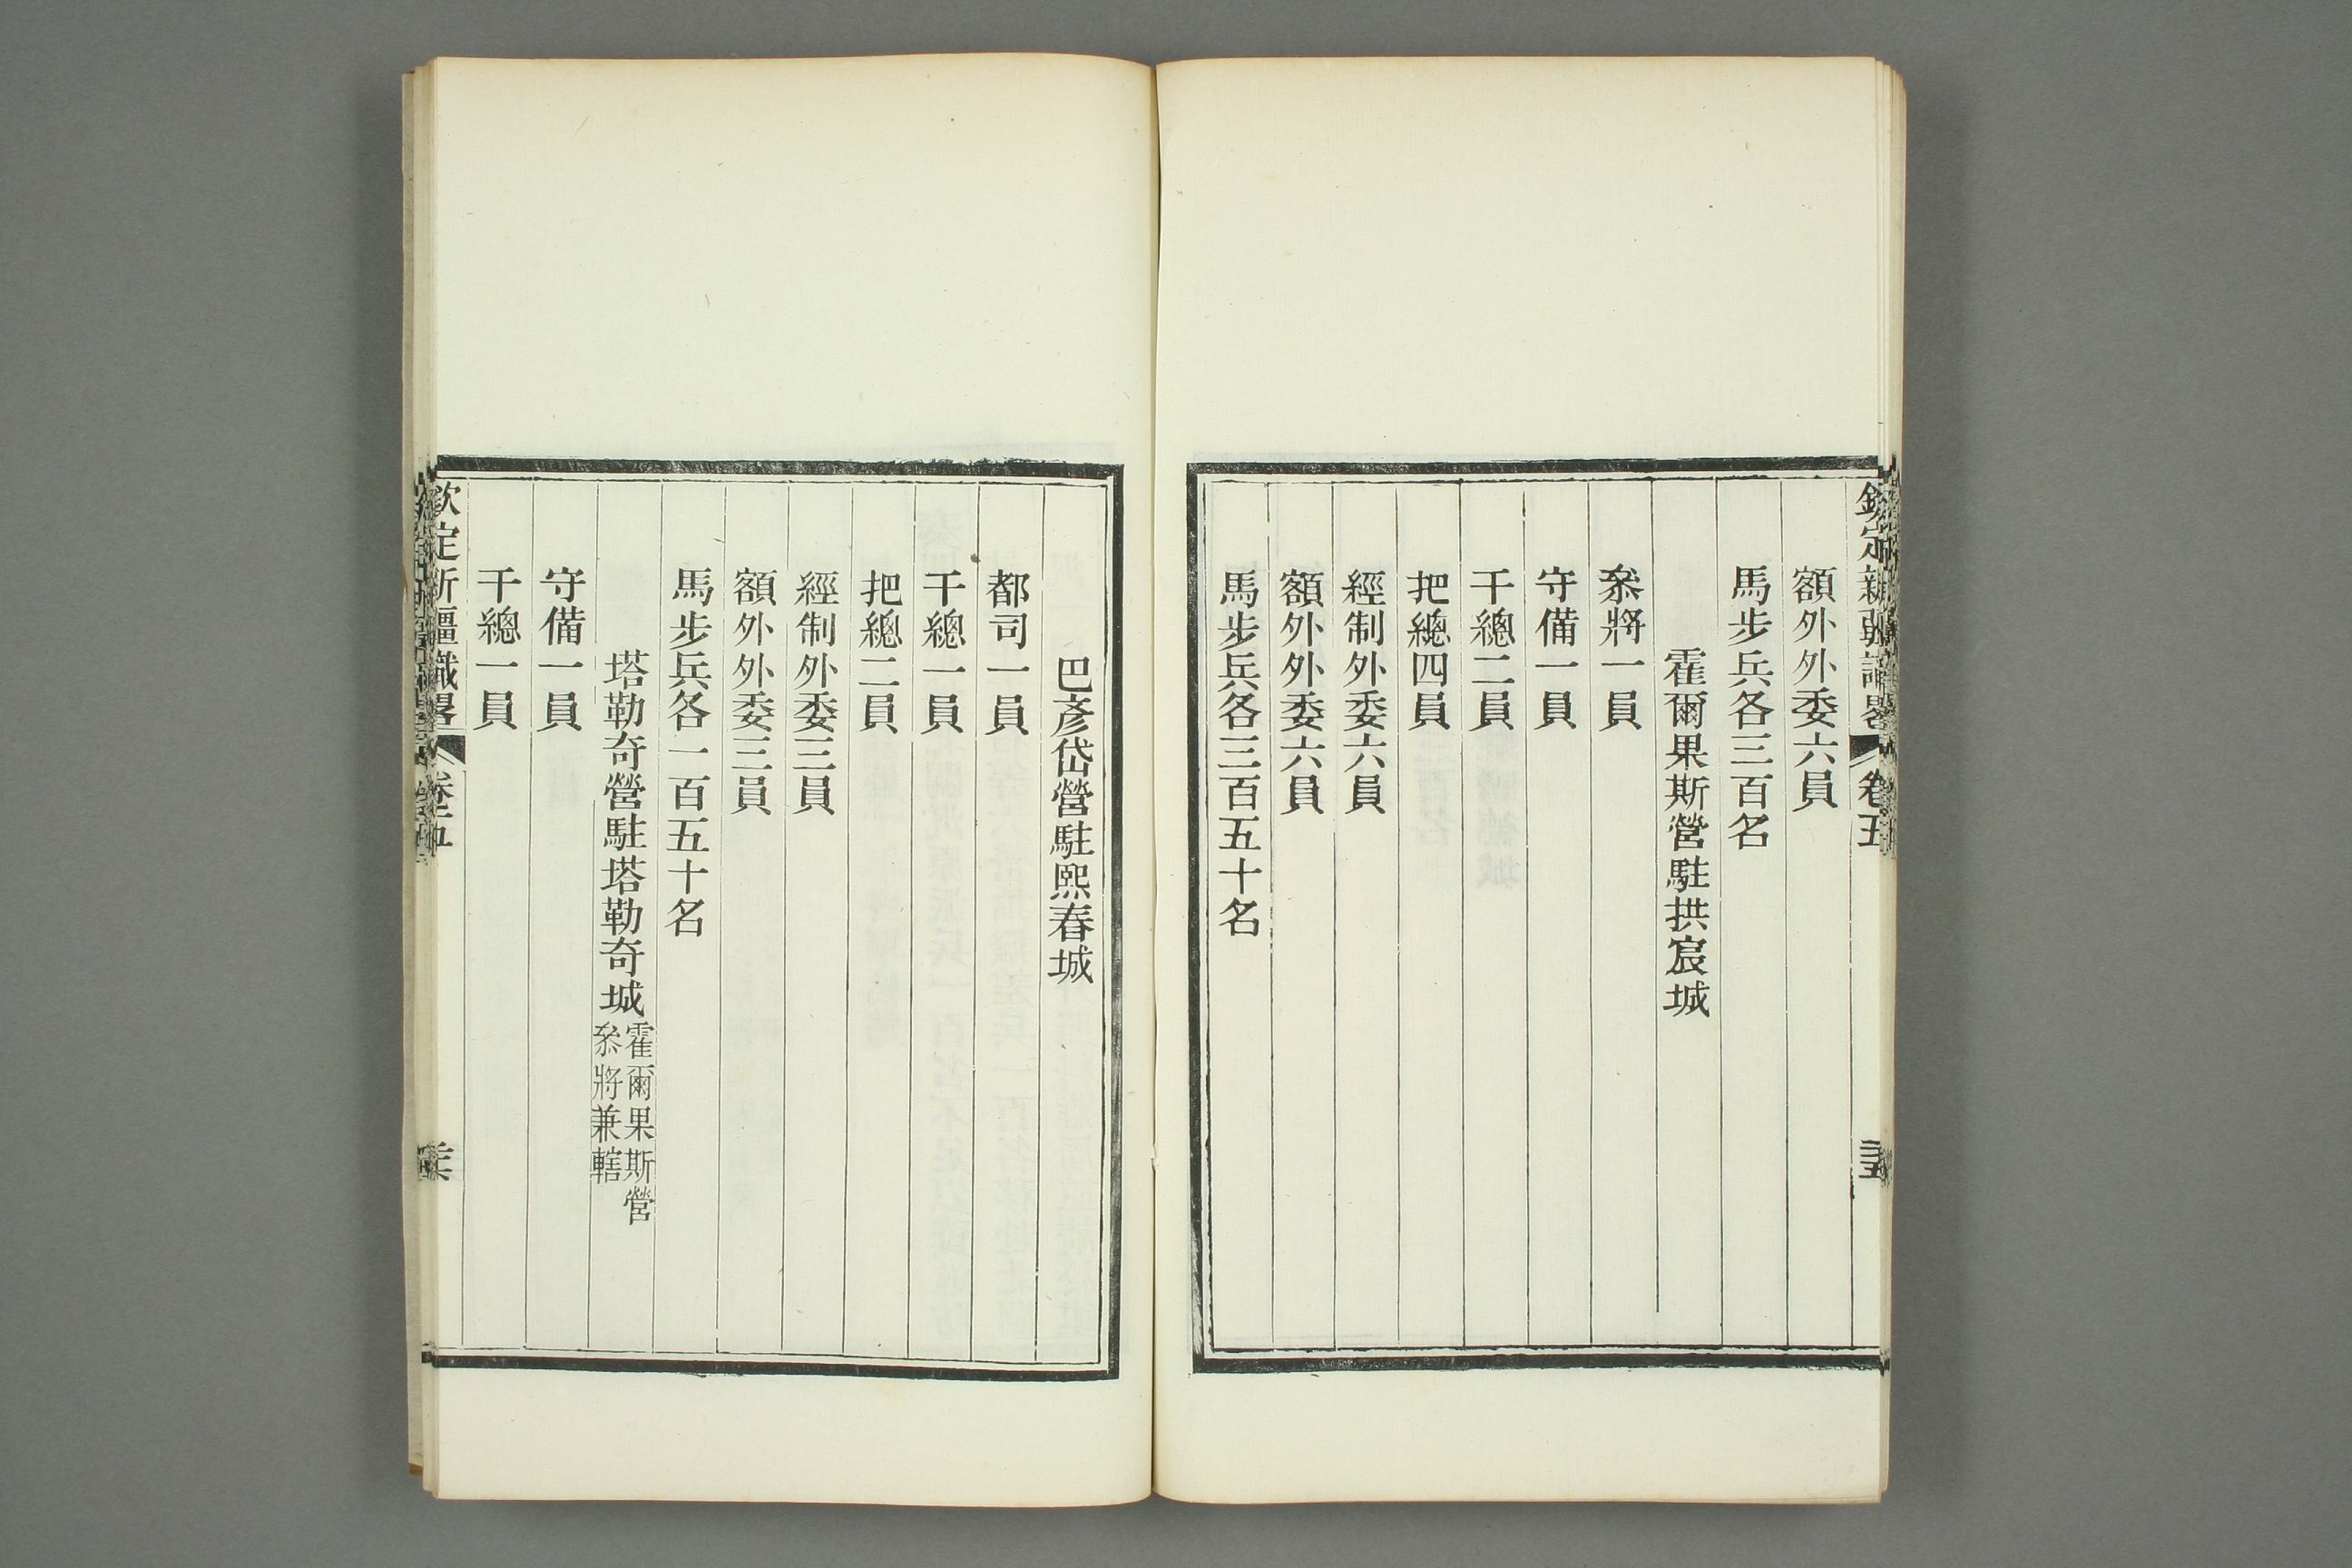 額外外委六員
馬步兵各三百名
霍爾果斯營駐拱宸城
叅將一員
守備一員
千總二員
把總四員
經制外委六員
額外外委六員
馬步兵各三百五十名
巴彥岱營駐熙春城
都司一員
千總一員
把總二員
經制外委三員
額外外委三員
馬步兵各一百五十名
塔勒奇營駐塔勒奇城霍爾果斯營叅將兼轄
守備一員
千總一員
欽定新疆識畧 卷五